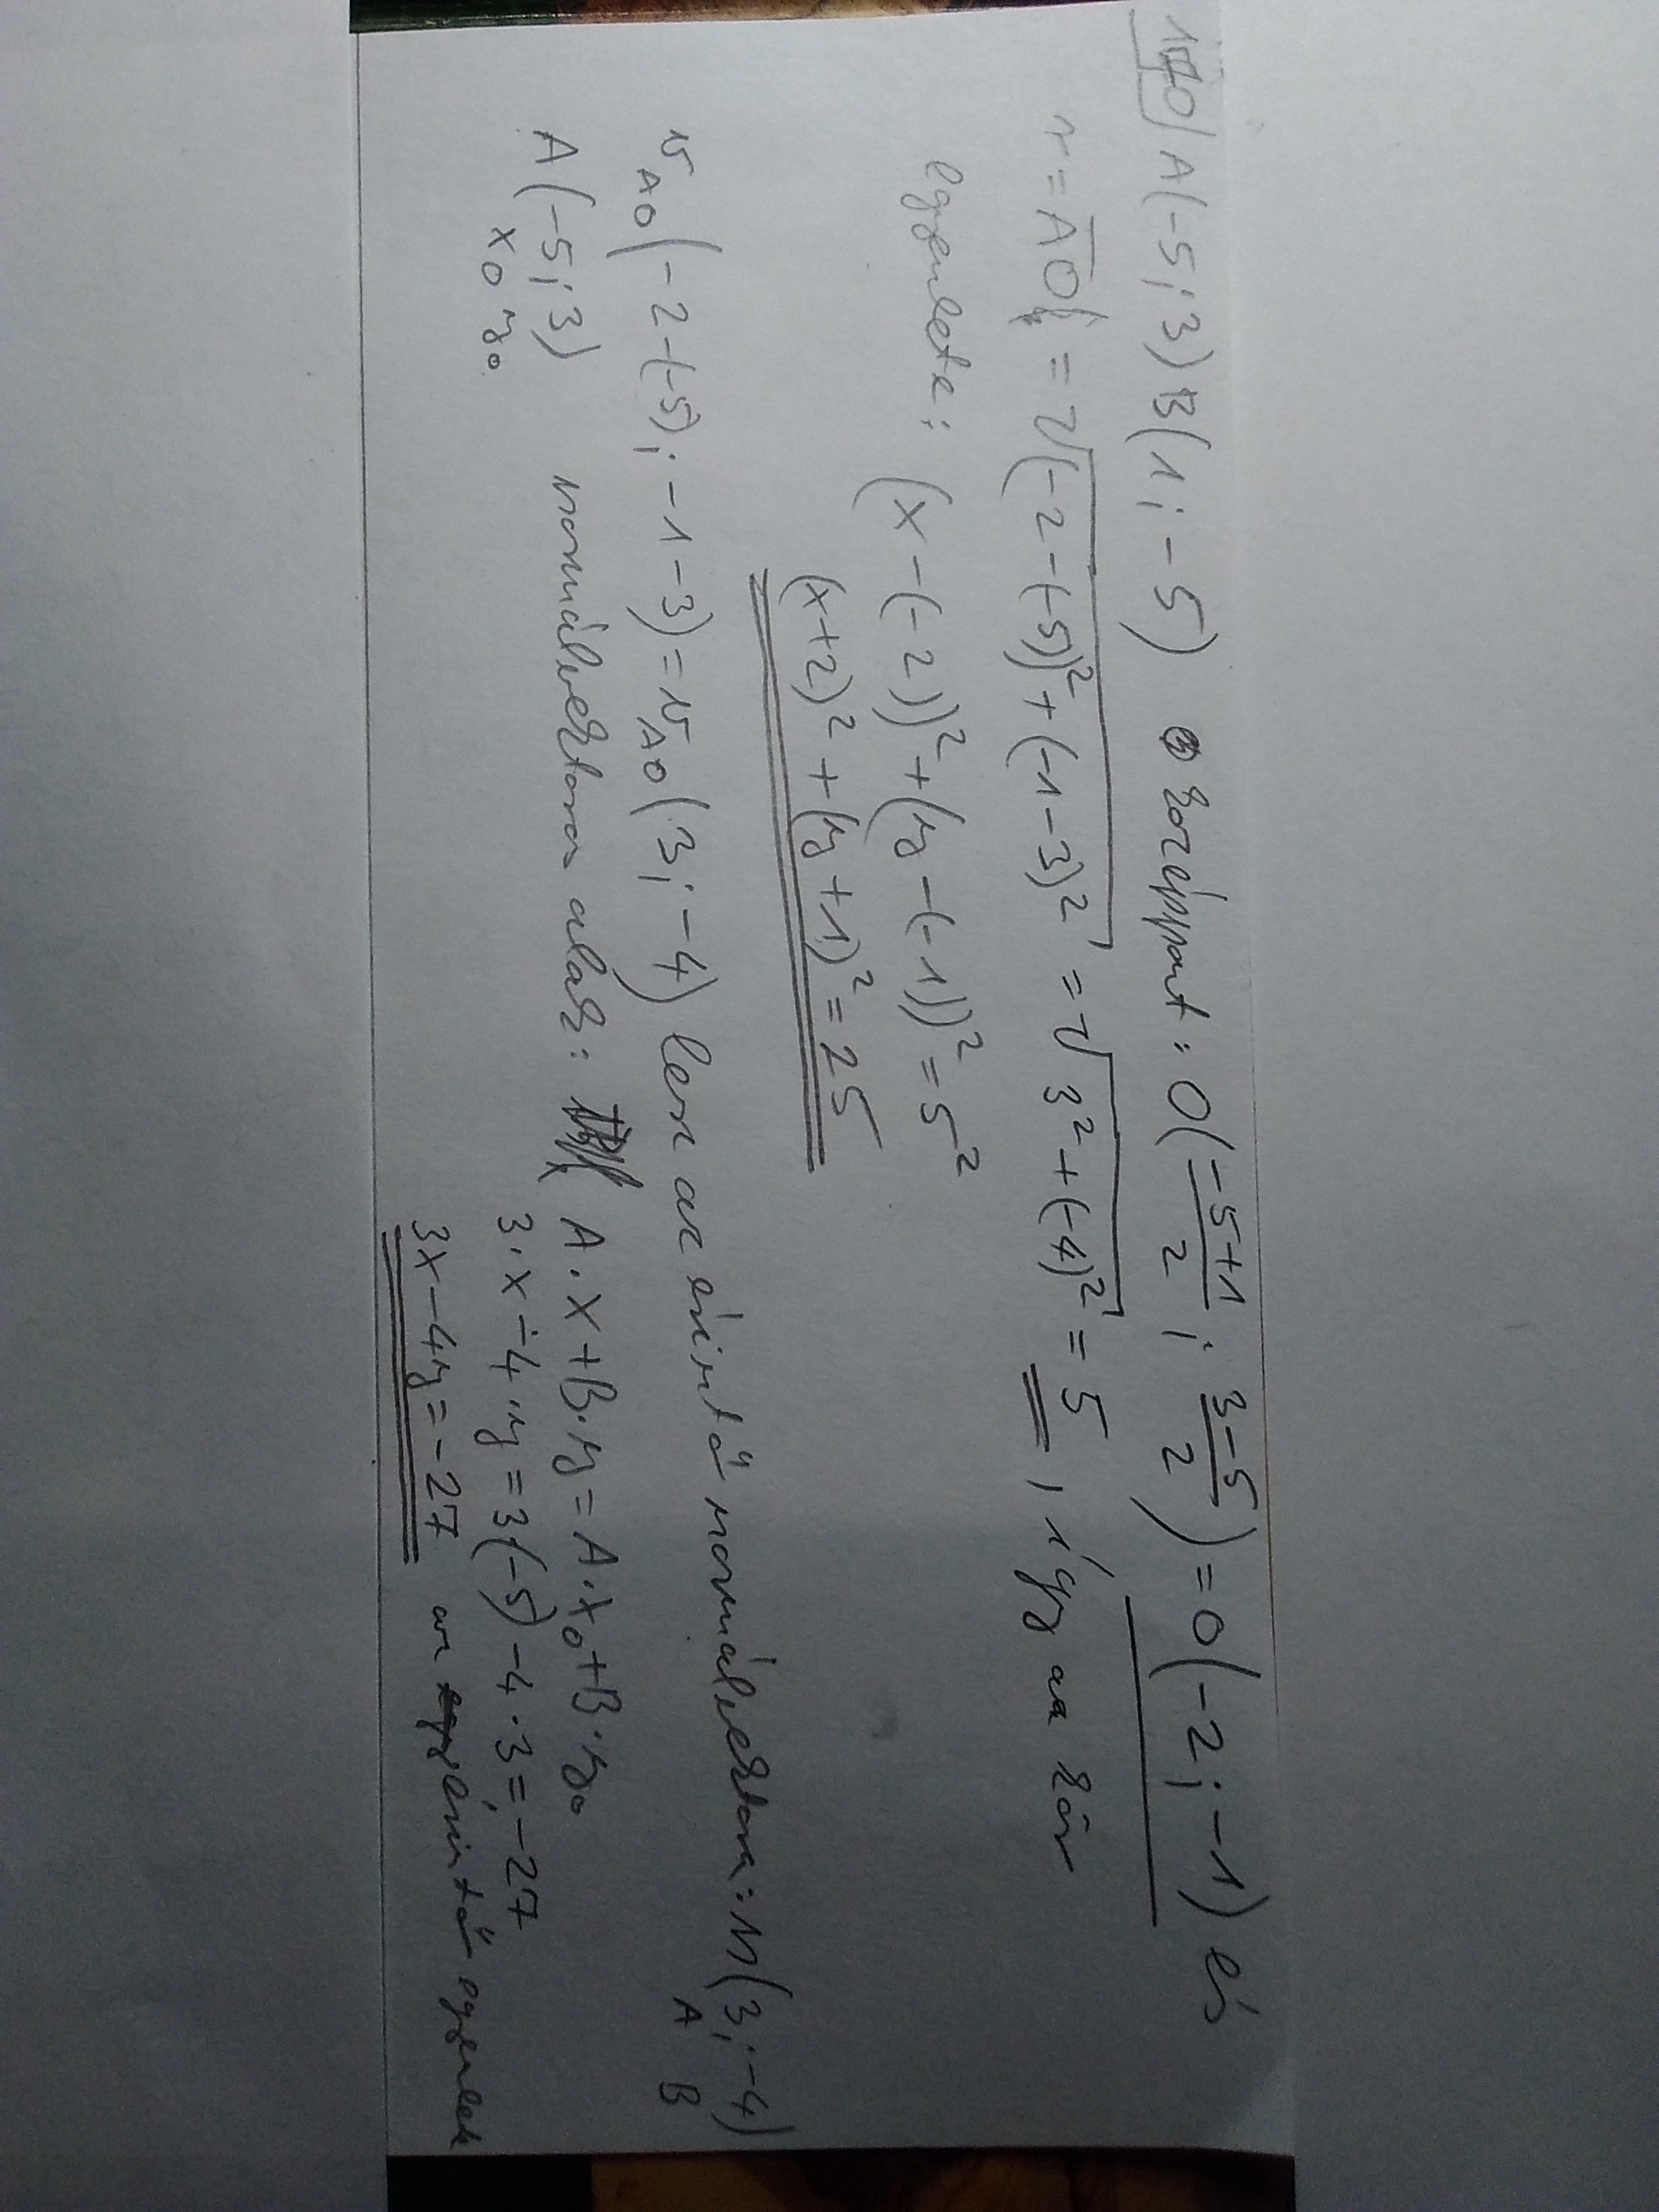 170/ A(-5;3) B(1;-5) középpont: O(-5+1/2 ; 3-5/2) = O(-2;-1) és
r = AO = √(-2-(-5))²+(-1-3)² = √3²+(-4)² = 5, így az kör
egyenlete: (x-(-2))²+(y-(-1))² = 5²
(x+2)²+(y+1)² = 25
v AO(-2-(-5); -1-3) = v AO(3;-4) lesz az érintő normálvektora: n(3;-4)
A B
A(-5;3) normálvektoros alak: A·x+B·y = A·x₀+B·y₀
x₀ y₀ 3·x-4·y = 3(-5)-4·3 = -27
3x-4y = -27 az érintő egyenlete